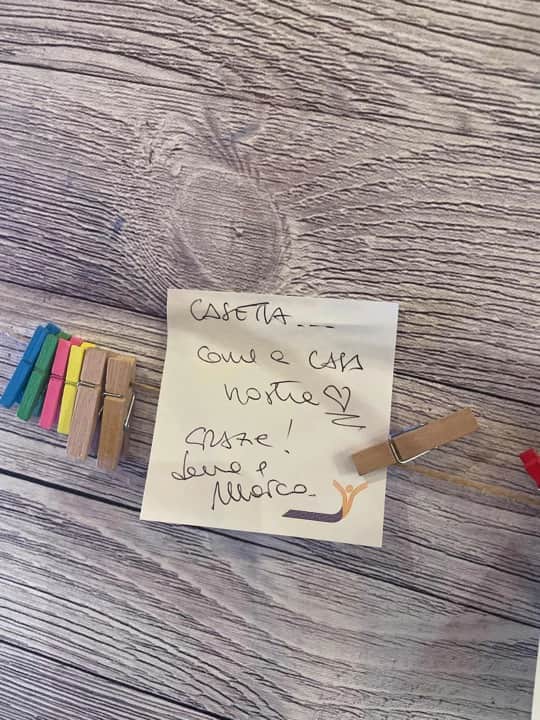 CASETTA ---
come a CASA
nostra ♡
GRAZIE!
e
Marco